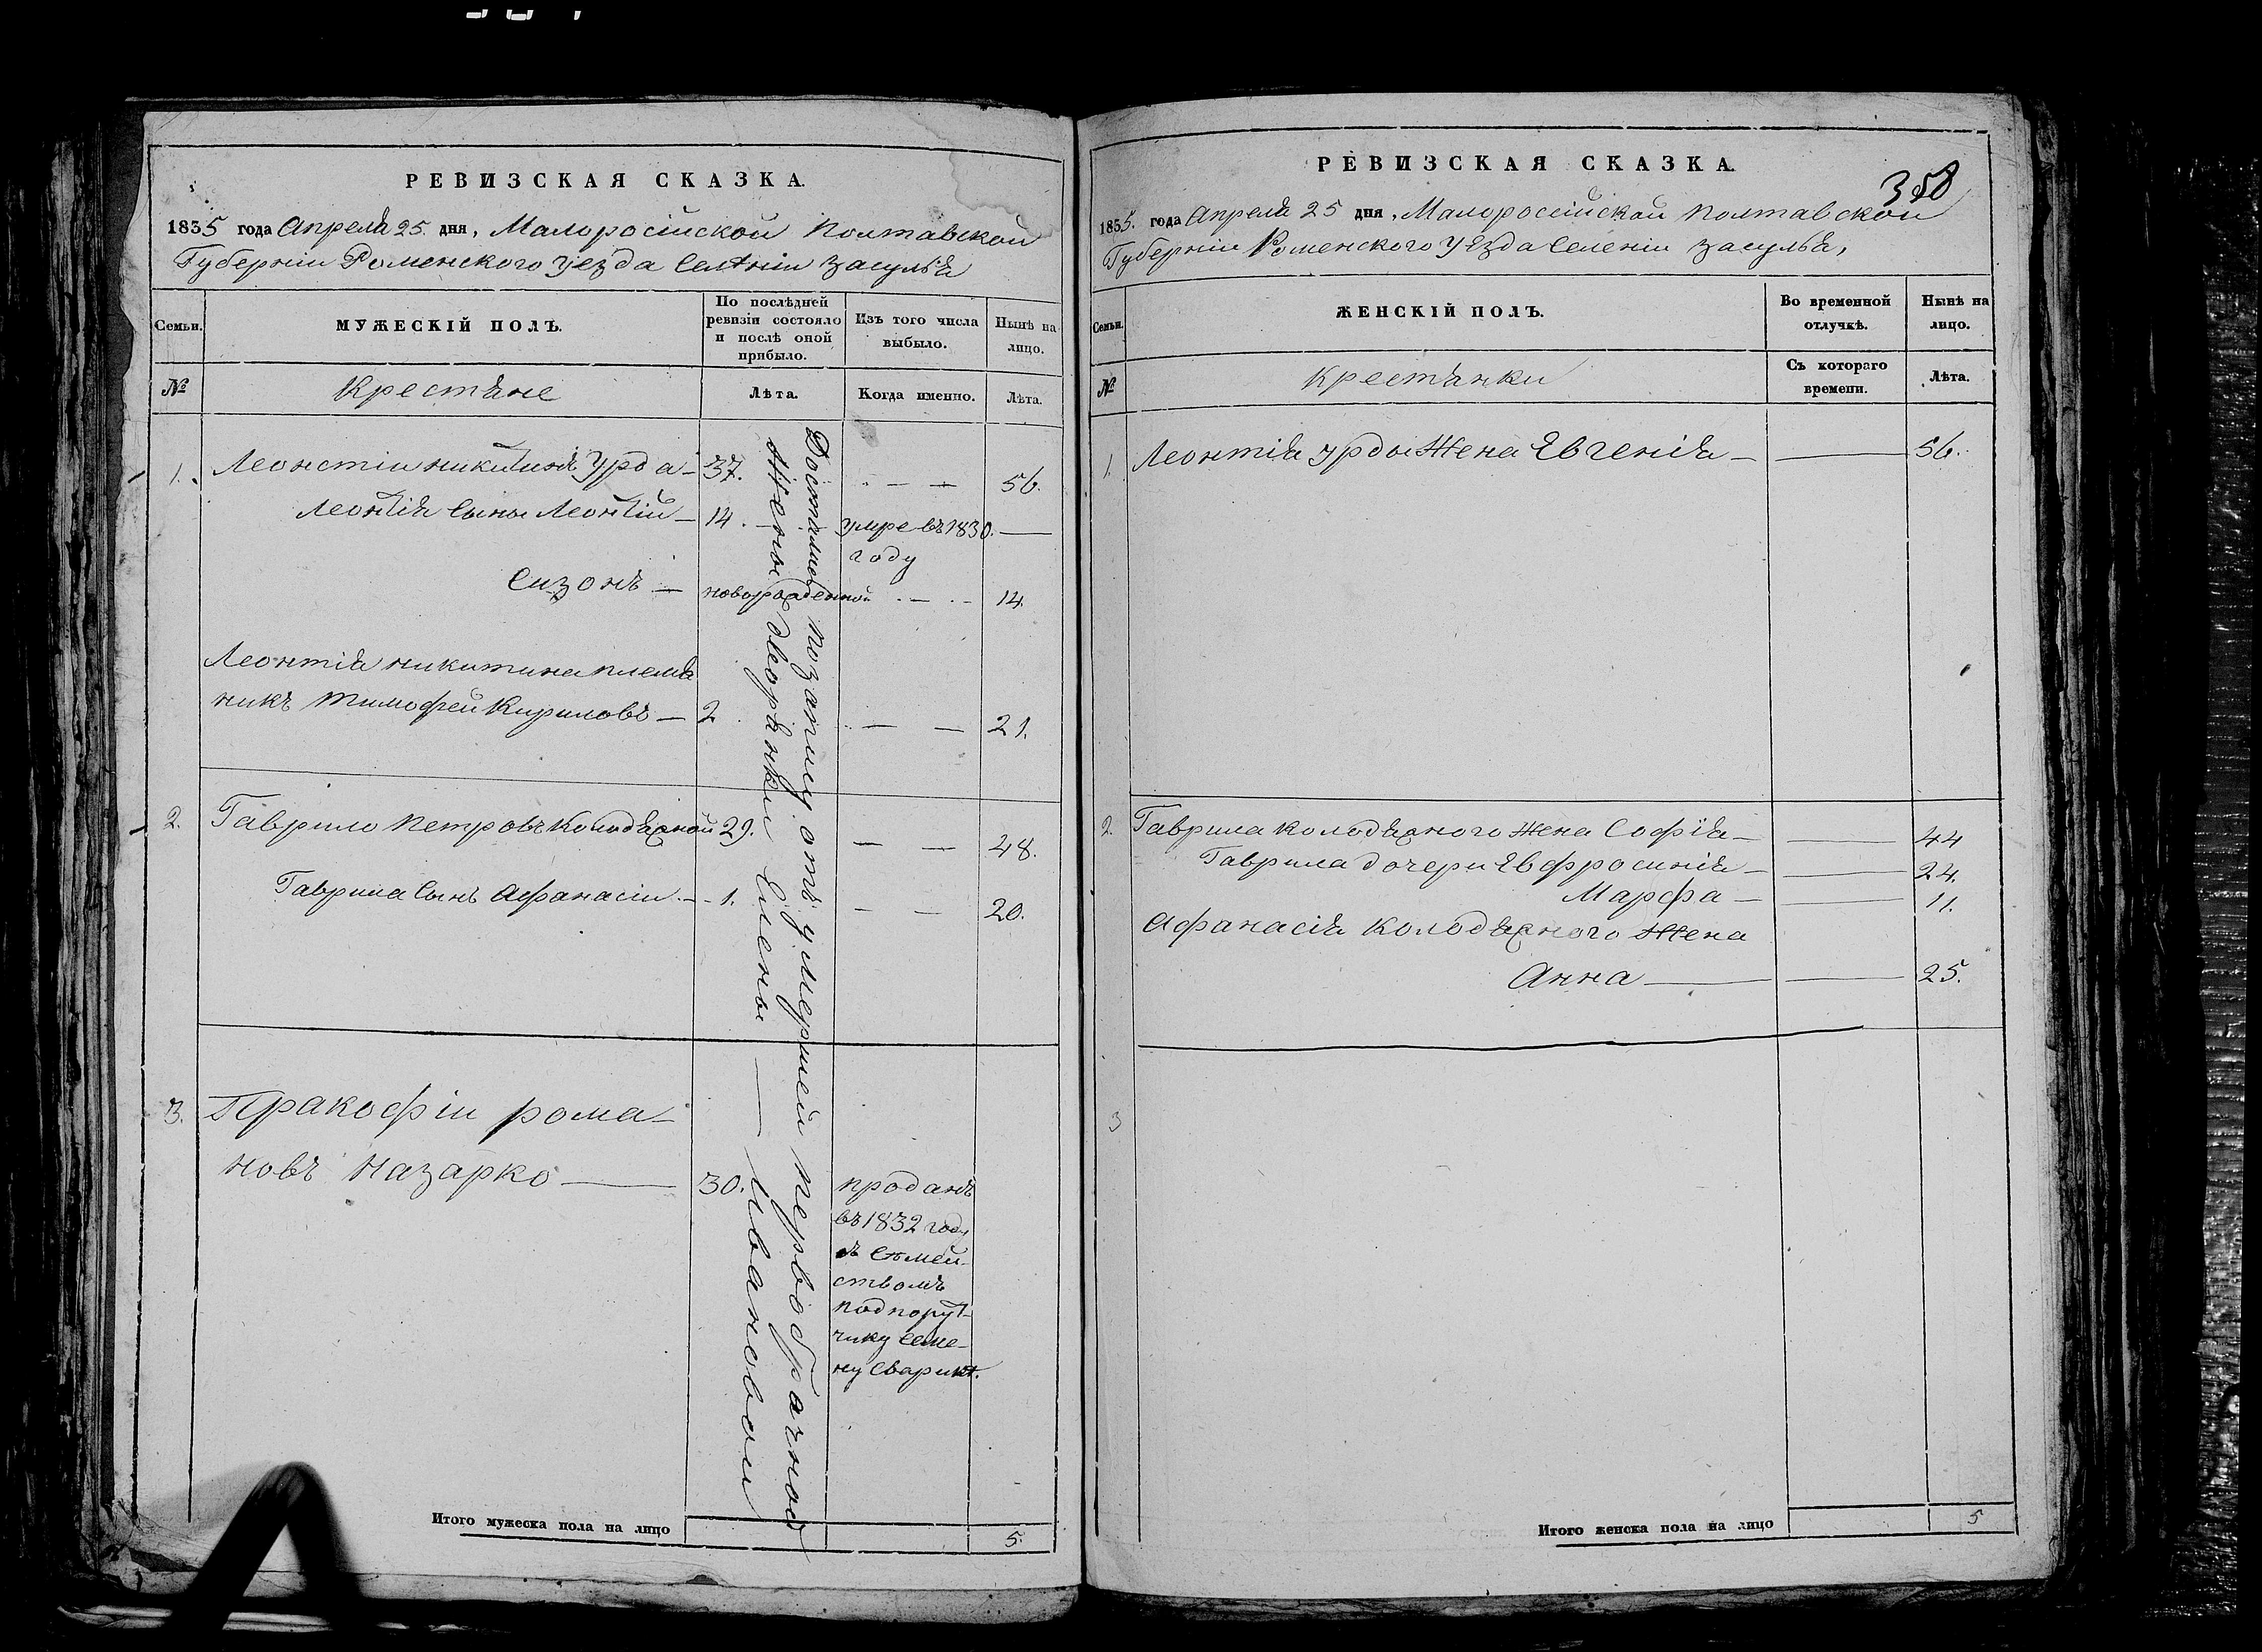 РЕВИЗСКАЯ СКАЗКА.
1835 года Апреля 25 дня, Малоросийской Полтавской
Губернии Роменского уезда Селении Засулья
Семьи.
МУЖЕСКІЙ ПОЛЪ.
По послѣдней
ревизіи состояло
и послѣ оной
прибыло.
Изъ того числа
выбыло.
Нынѣ на
лицо.
№
Крестяне
Лѣта.
Когда именно.
Лѣта.
1. Леонтии Никитинъ Урда 37. 56.
Леонтія Сыны Леонтій 14. умре въ 1830.
году
Сизонъ новорожденной 14.
Леонтія Никитина племя
никъ Тимофей Кириловъ 2 21.
2. Гаврило Петровъ Колодяжной 29. 48.
Гаврила Сынъ Афанасии 1. 20.
3. Пракофіи Рома-
новъ Назарко 30. проданъ
въ 1832 году
съ Семей-
ствомъ
подпору-
чику Семе-
ну
Достались по запису отъ умершей первобрачной
Жены дворянки Елены Ивановой
Итого мужеска пола на лицо 5.
РЕВИЗСКАЯ СКАЗКА.
350
1835. года Апреля 25 дня, Малороссійской Полтавской
Губерніи Роменского уезда Селеніи Засулья,
Семьи.
ЖЕНСКІЙ ПОЛЪ.
Во временной
отлучкѣ.
Нынѣ на
лицо.
№
Крестянки
Съ котораго
времени.
Лѣта.
1. Леонтія Урды Жена Евгенія 56.
2. Гаврила Колодяжного Жена Софія 44
Гаврила дочери Евфросинія 24.
Марфа 11.
Афанасія Колодяжного Жена
Анна 25.
3
Итого женска пола на лицо 5